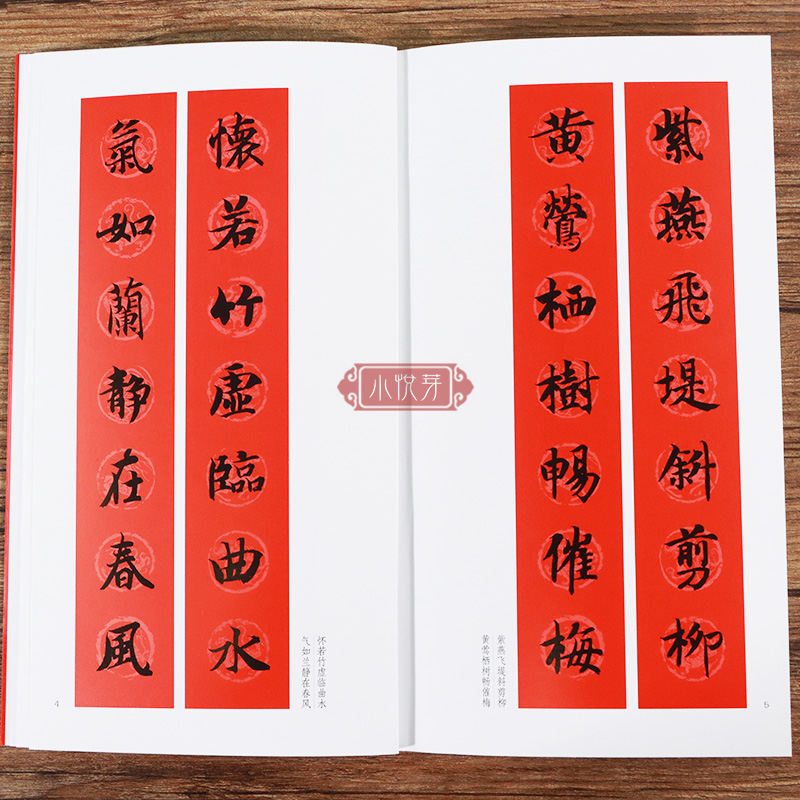 紫燕飛堤斜剪柳
黄鶯栖樹暢催梅
紫燕飞堤斜剪柳
黄莺栖树畅催梅
5
懷若竹虛臨曲水
氣如蘭静在春風
怀若竹虚临曲水
气如兰静在春风
4
小悦芽